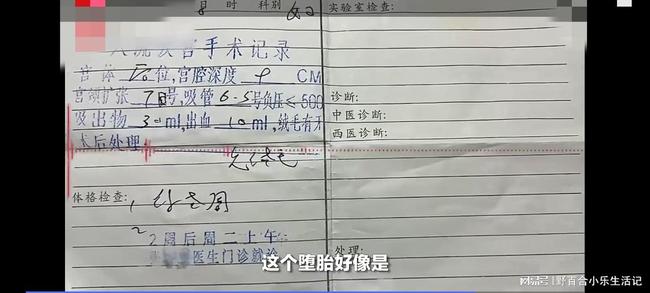 时 科别 妇
实验室检查:
人流吸宫手术记录
宫体 后 位,宫腔深度 9 CM
宫颈扩张 7 号,吸管 6.5 号负压≤500
诊断:
吸出物 30 ml,出血 10 ml,绒毛有无
中医诊断:
术后处理
西医诊断:
体格检查:
1,
2
2周后周二上午
医生门诊就诊
处理:
这个堕胎好像是
搜狐号@野百合小乐生活记